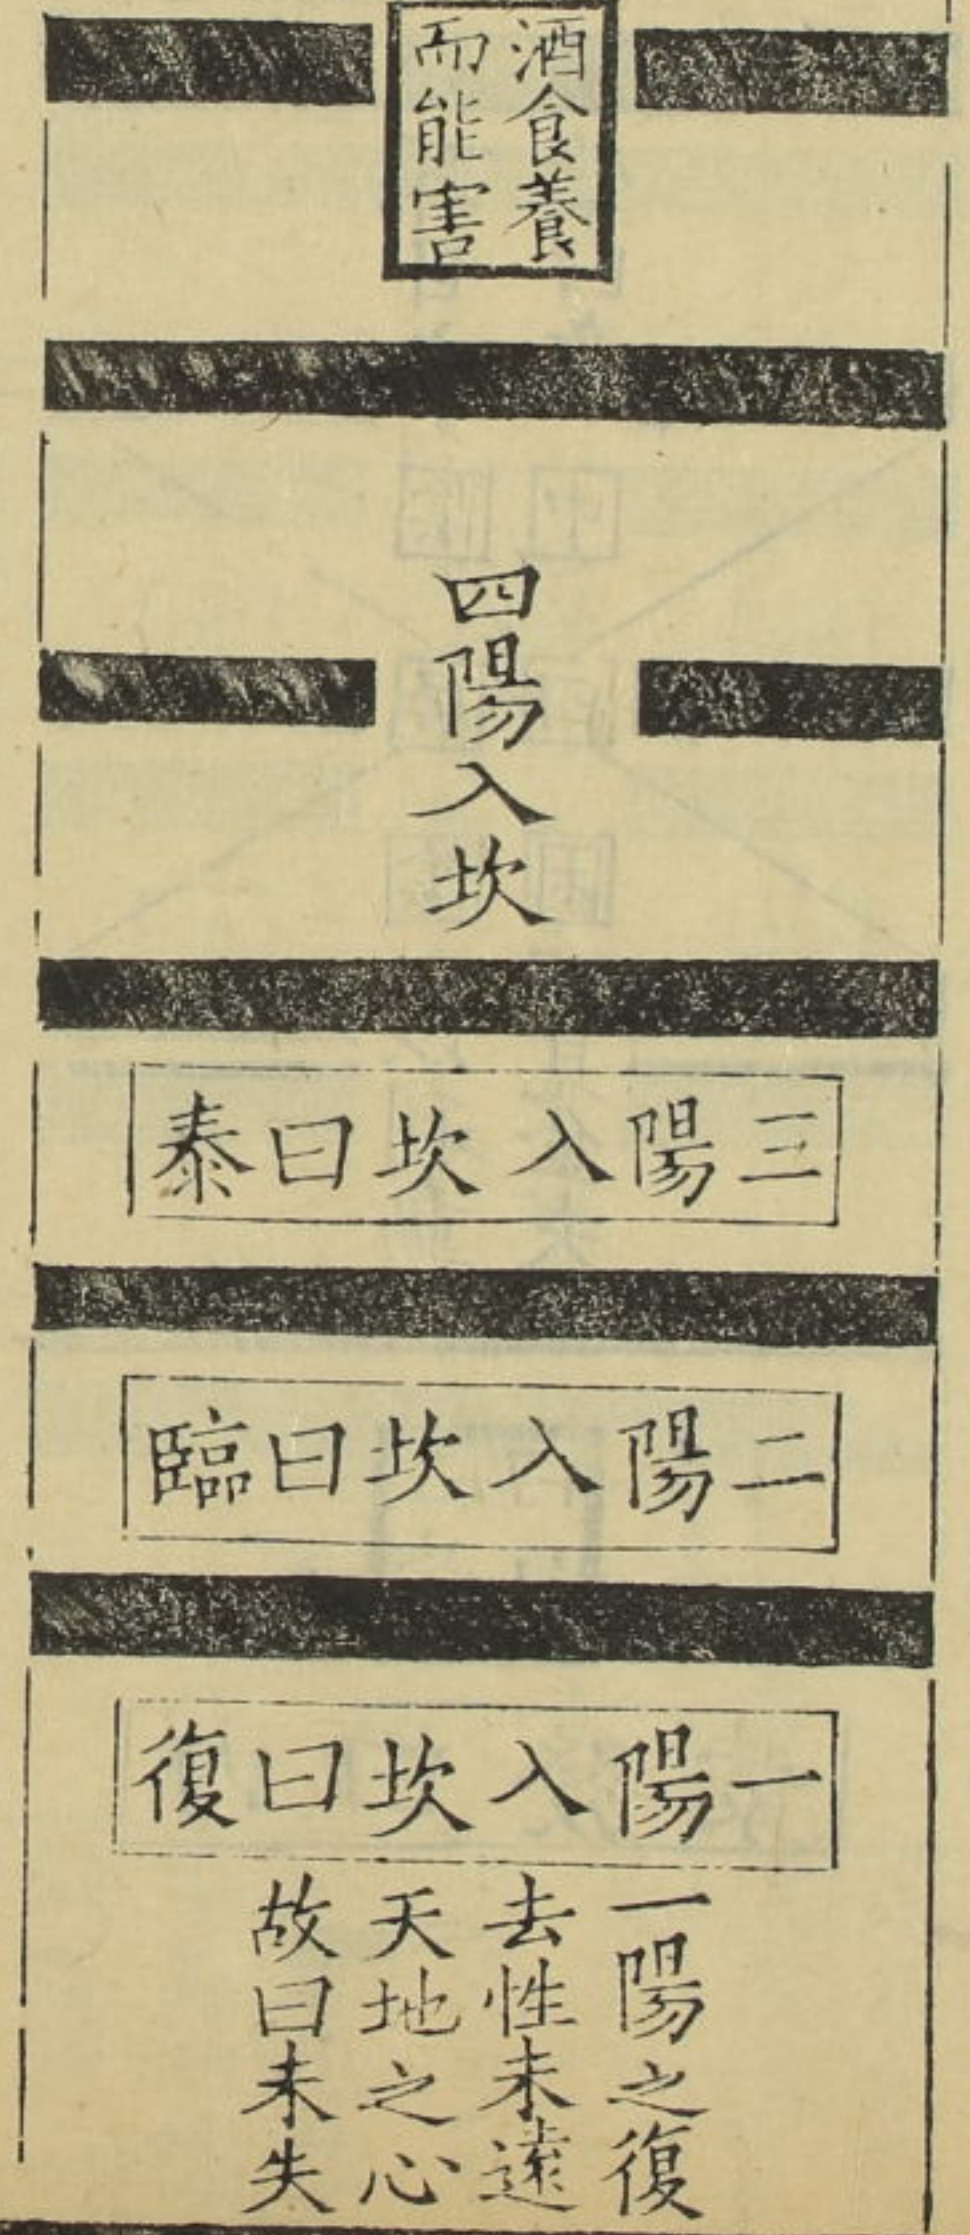 酒食養
而能害
四陽入坎
三陽入坎曰泰
二陽入坎曰臨
一陽入坎曰復
一陽之復
去性未遠
天地之心
故曰未失